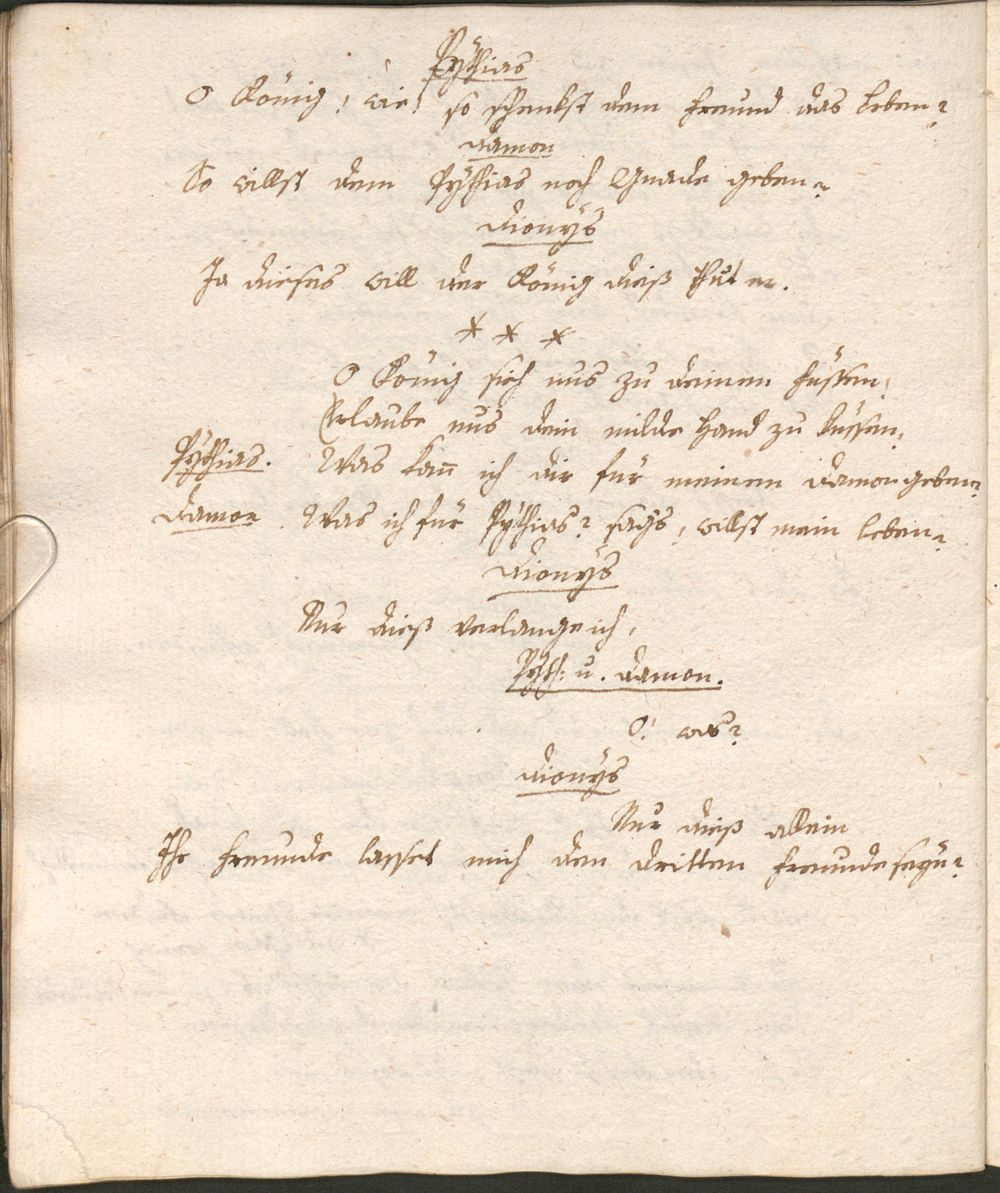 Pÿthias
O König! wie! so schenkst dem Freund das Leben?
Damon
So willst dem Pÿthias noch Gnade geben?
Dionÿs
Ja dieses will der König dieß thut er.
* * *
O König sieh uns zu deinen Füssen,
Erlaube uns dein milde Hand zu küssen,
Pÿthias. Was kan̄ ich dir für meinen Damon geben?
Damon Was ich für Pÿthias? sag's, willst mein Leben?
Dionÿs
Nur dieß verlange ich,
Pÿth: u. Damon.
O! was?
Dionÿs
Nur dieß allein
Ihr Freunde lasset mich den dritten Freunde seÿn?